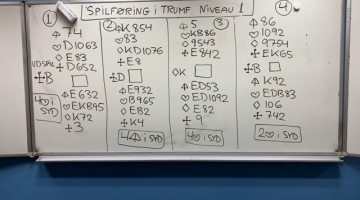 SPILFØRING I TRUMF. NIVEAU 1
①
♠ 74
♡ D1063
◇ E83
♣ D652
UDSPIL
♣B
♠ E632
♡ EKB95
◇ K72
♣ 3
4♡ i SYD
②
♠ K854
♡ 83
◇ KD1076
♣ E8
♣D
♠ E932
♡ B965
◇ EB2
♣ K4
4♠ i SYD
③
♠ 5
♡ KB86
◇ 9543
♣ E842
◇K
♠ ED53
♡ ED1092
◇ E82
♣ 9
4♡ i SYD
④
♠ 86
♡ 1092
◇ 9754
♣ EK65
♣B
♠ K92
♡ EDB83
◇ 106
♣ 742
2♡ i SYD